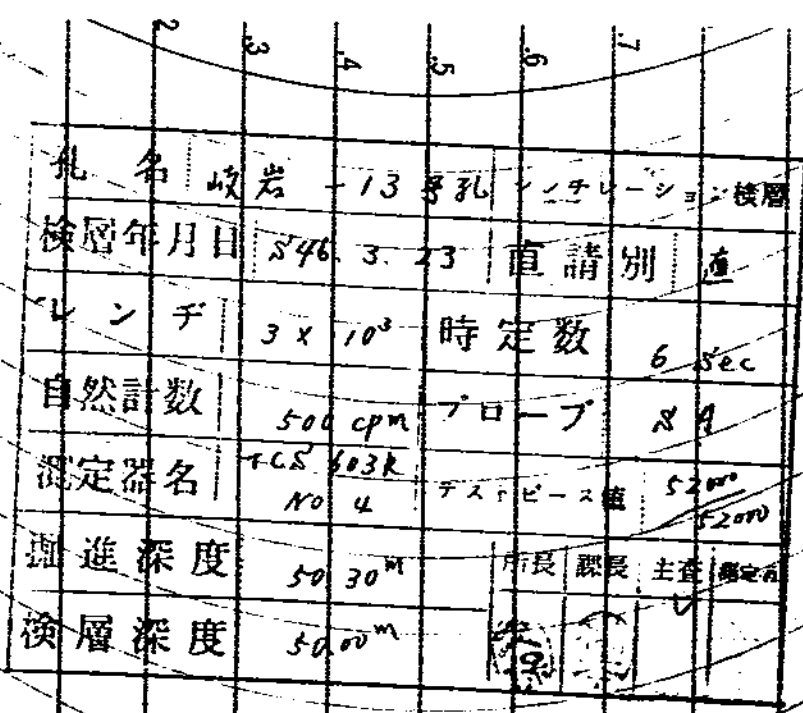 .2 .3 .4 .5 .6 .7
孔名 岐岩-13号孔 シンチレーション検層
検層年月日 S46.3.23 直請別 直
レンヂ 3×10³ 時定数 6 Sec
自然計数 500 cpm プローブ SA
測定器名 TCS 603R NO 4 テストピース値 52000/52000
掘進深度 50.30m 所長 課長 主査 測定者
検層深度 50.00m